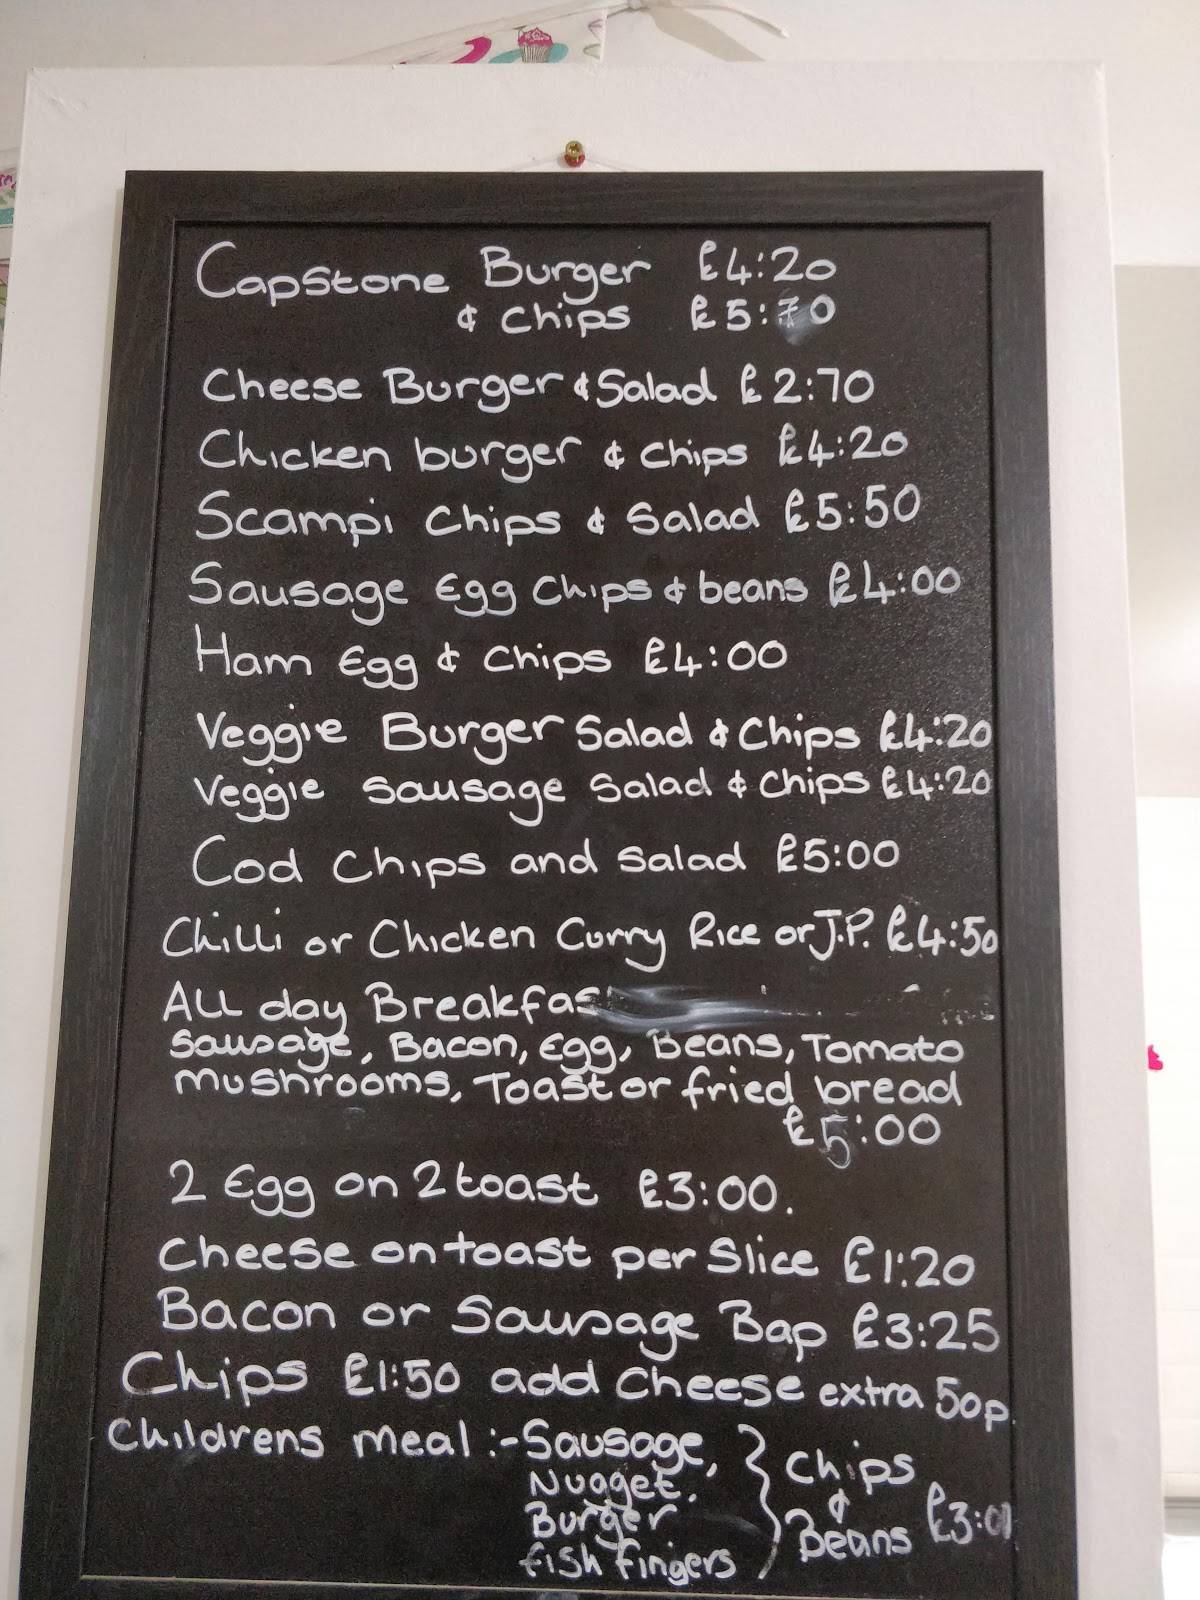 Capstone Burger £4:20
& chips £5:70
Cheese Burger & Salad £2:70
Chicken burger & chips £4:20
Scampi Chips & Salad £5:50
Sausage Egg Chips & beans £4:00
Ham Egg & Chips £4:00
Veggie Burger Salad & Chips £4:20
Veggie sausage salad & chips £4:20
Cod Chips and Salad £5:00
Chilli or Chicken Curry Rice or J.P. £4:50
All day Breakfas
Sausage, Bacon, Egg, Beans, Tomato
mushrooms, Toast or fried bread
£5:00
2 Egg on 2 toast £3:00.
Cheese on toast per Slice £1:20
Bacon or Sausage Bap £3:25
Chips £1:50 add Cheese extra 50p
Childrens meal :- Sausage,
Nugget.
Burger
fish fingers
Chips
&
Beans £3:00